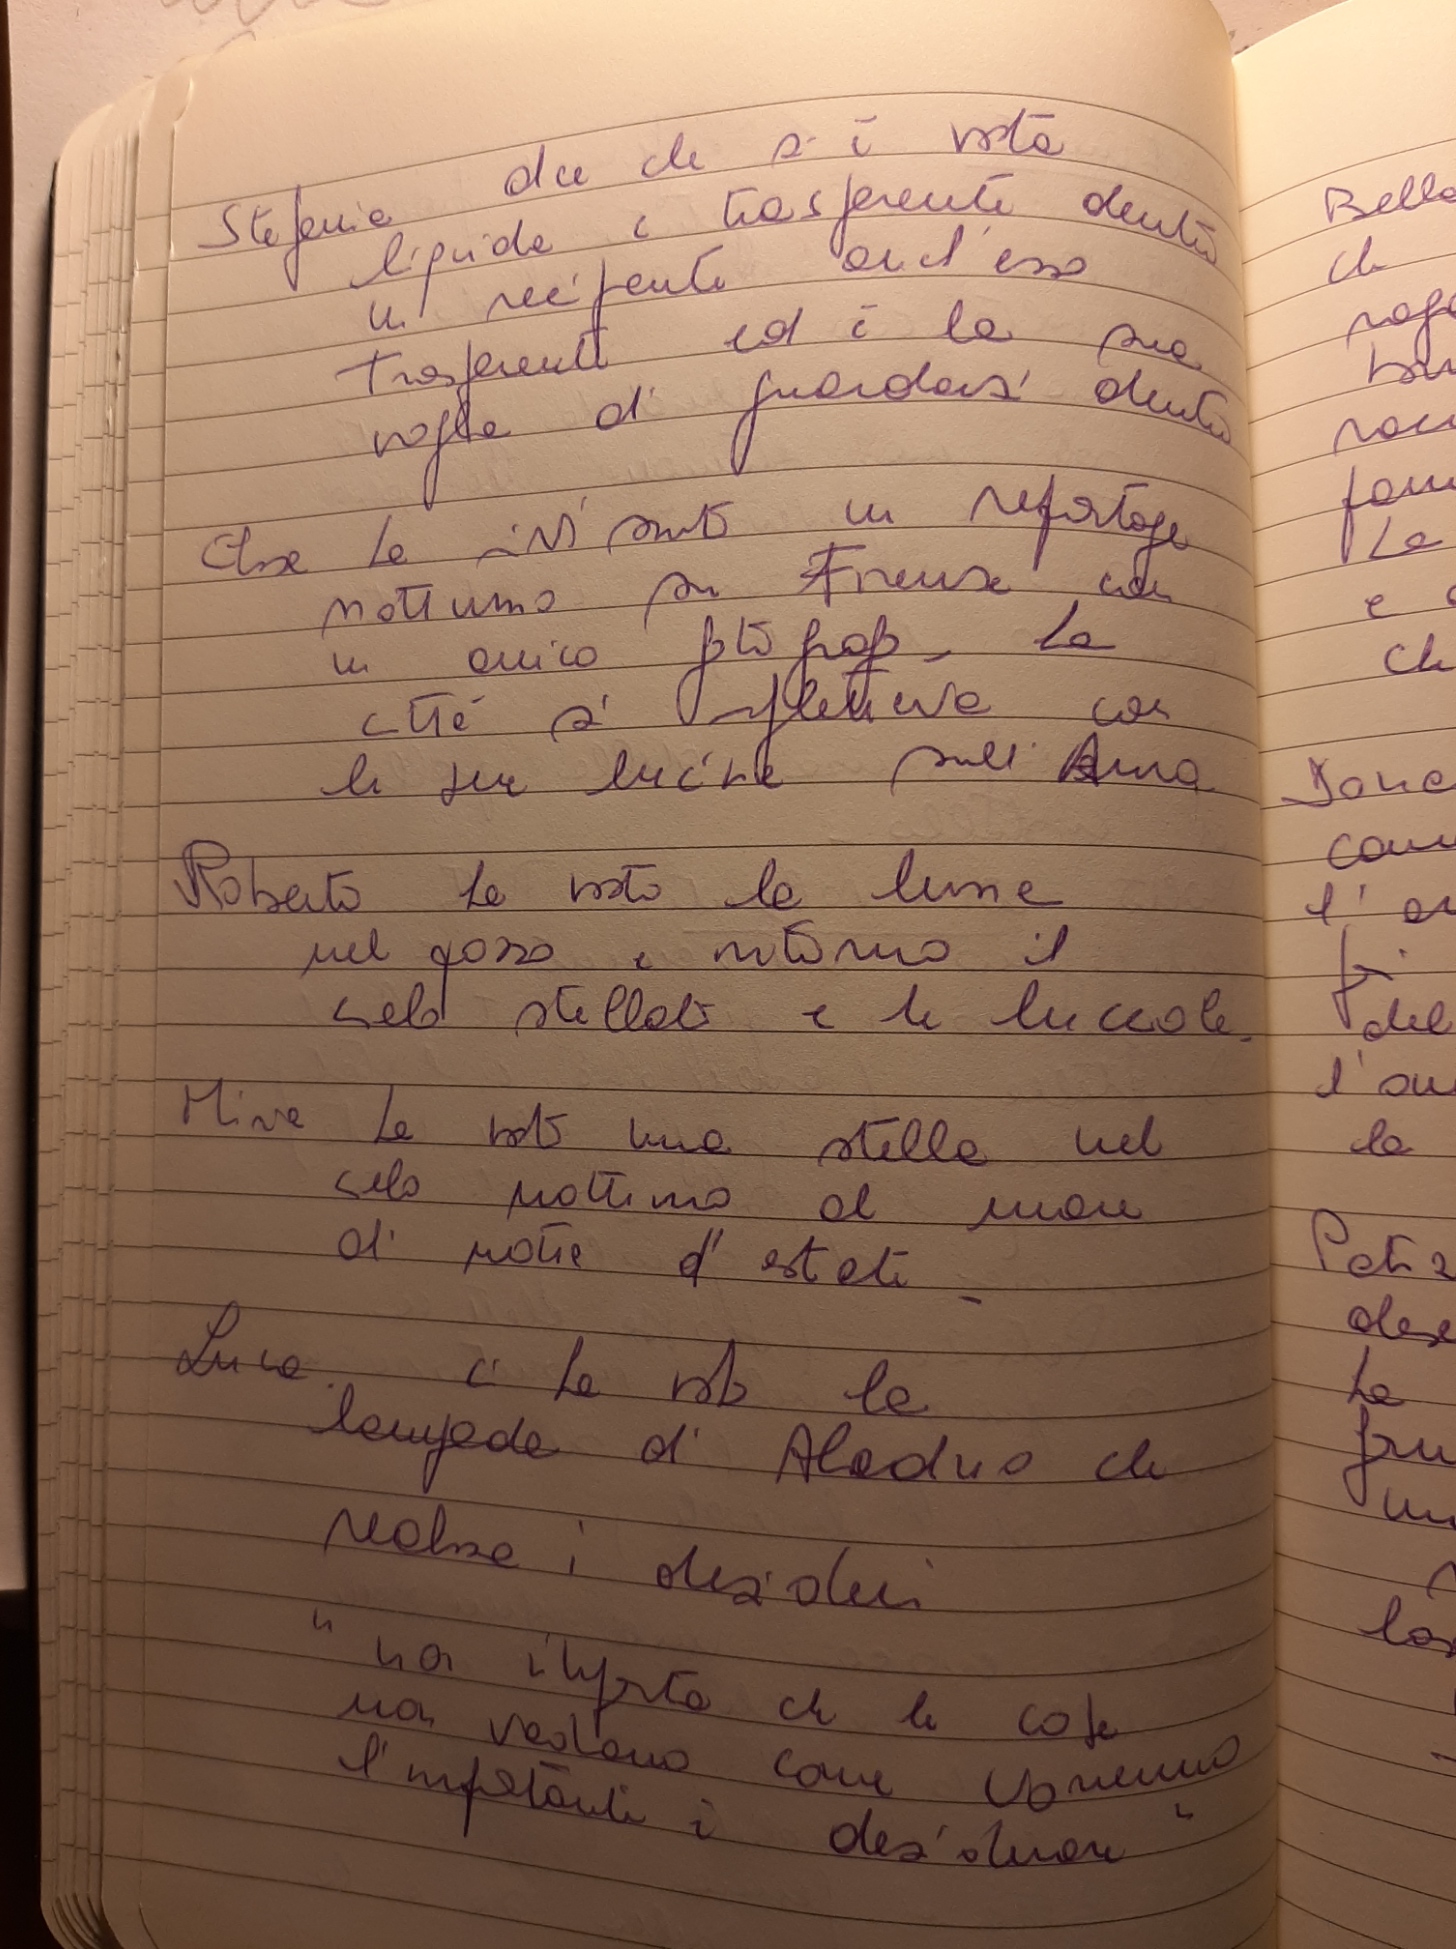 Stefania dice che si è vista
liquida e trasparente dentro
un recipiente anch'esso
trasparente ed è la sua
voglia di guardarsi dentro
ha rivissuto un reportage
notturno su Firenze con
un amico fotografo. La
città si rifletteva con
le sue lucine sull'Arno
Roberto ha visto la luna
nel pozzo e intorno il
cielo stellato e le lucciole.
ha visto una stella nel
cielo notturno al mare
di notte d'estate.
Luca ci ha visto la
lampada di Aladino che
realizza i desideri
"non importa che le cose
non vadano come vorremmo
l'importante è desiderare"
Bella
che
fam
La
e
ch
l'
del
la
Ha